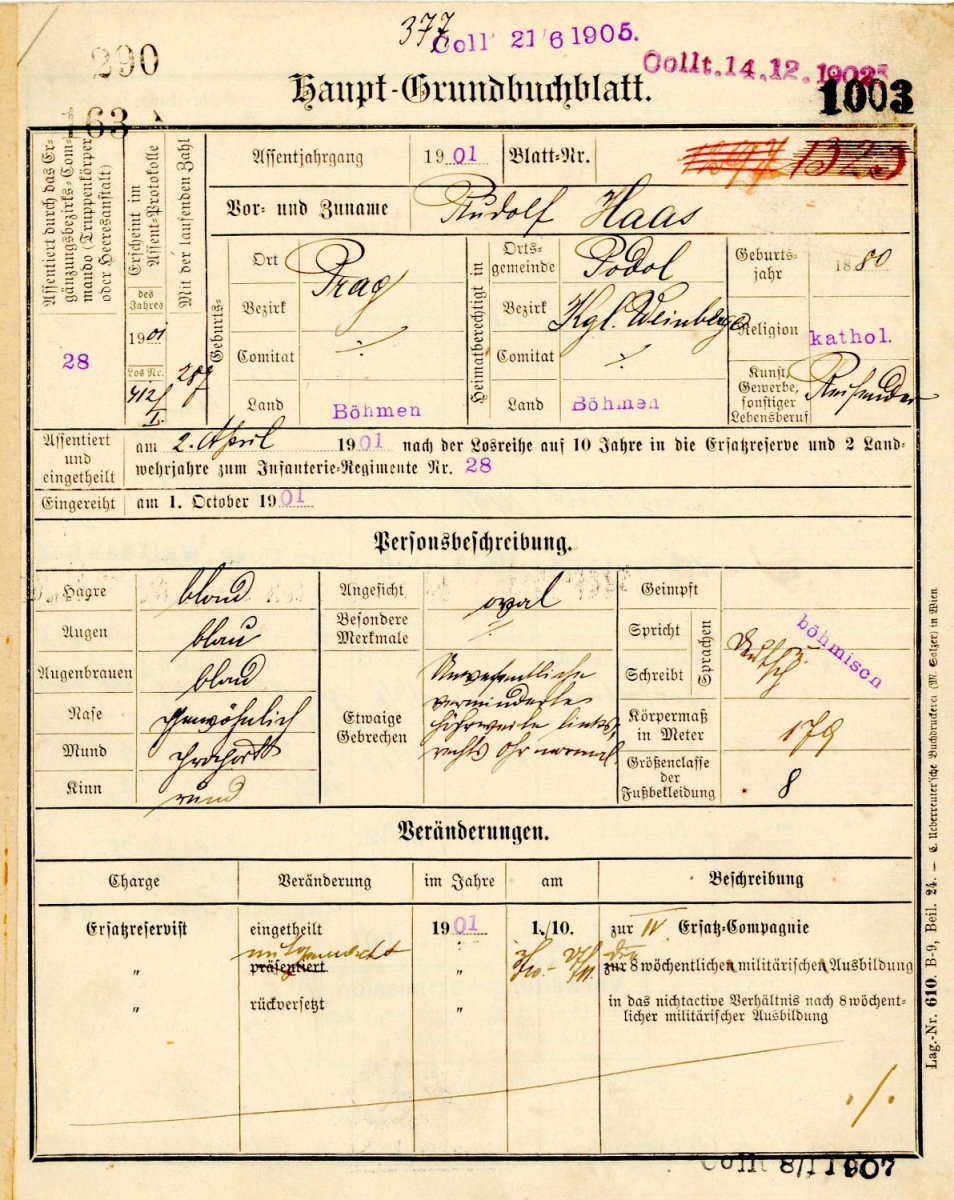 377
Coll 21/6 1905.
290
Collt. 14.12.1902
Haupt-Grundbuchblatt.
1003
163
Assentiert durch das Ergänzungsbezirks-Commando (Truppenkörper oder Heeresanstalt)
28
Erscheint im Assent-Protokolle
des Jahres
1901
Los Nr.
412/I.
Mit der laufenden Zahl
287
Assentjahrgang 1901 Blatt-Nr. 1323
Vor- und Zuname Rudolf Haas
Geburts-
Ort Prag
Bezirk
Comitat ./.
Land Böhmen
Heimatberechtigt in
Ortsgemeinde Podol
Bezirk Kgl. Weinberge
Comitat ./.
Land Böhmen
Geburtsjahr 1880
Religion kathol.
Kunst, Gewerbe, sonstiger Lebensberuf Reisender
Assentiert und eingetheilt
am 2. April 1901 nach der Losreihe auf 10 Jahre in die Ersatzreserve und 2 Land-
wehrjahre zum Infanterie-Regimente Nr. 28
Eingereiht am 1. October 1901
Personsbeschreibung.
Haare blond
Augen blau
Augenbrauen blond
Nase gewöhnlich
Mund
Kinn rund
Angesicht oval
Besondere Merkmale ./.
Etwaige Gebrechen
Unwesentliche
verminderte
Hörweite links,
rechts Ohr normal.
Geimpft
Spricht
Schreibt
Sprachen
deutsch u. böhmisch
Körpermaß in Meter 179
Größenclasse der Fußbekleidung 8
Veränderungen.
Charge Veränderung im Jahre am Beschreibung
Ersatzreservist eingetheilt 1901 1./10. zur IV Ersatz-Compagnie
" mitgemacht präsentiert " die zur 8 wöchentlichen militärischen Ausbildung
" rückversetzt " in das nichtactive Verhältnis nach 8 wöchent-
licher militärischer Ausbildung
./.
Collt 8/1 1907
Lag.-Nr. 610. B-9, Beil. 24. — C. Ueberreuter'sche Buchdruckerei (M. Salzer) in Wien